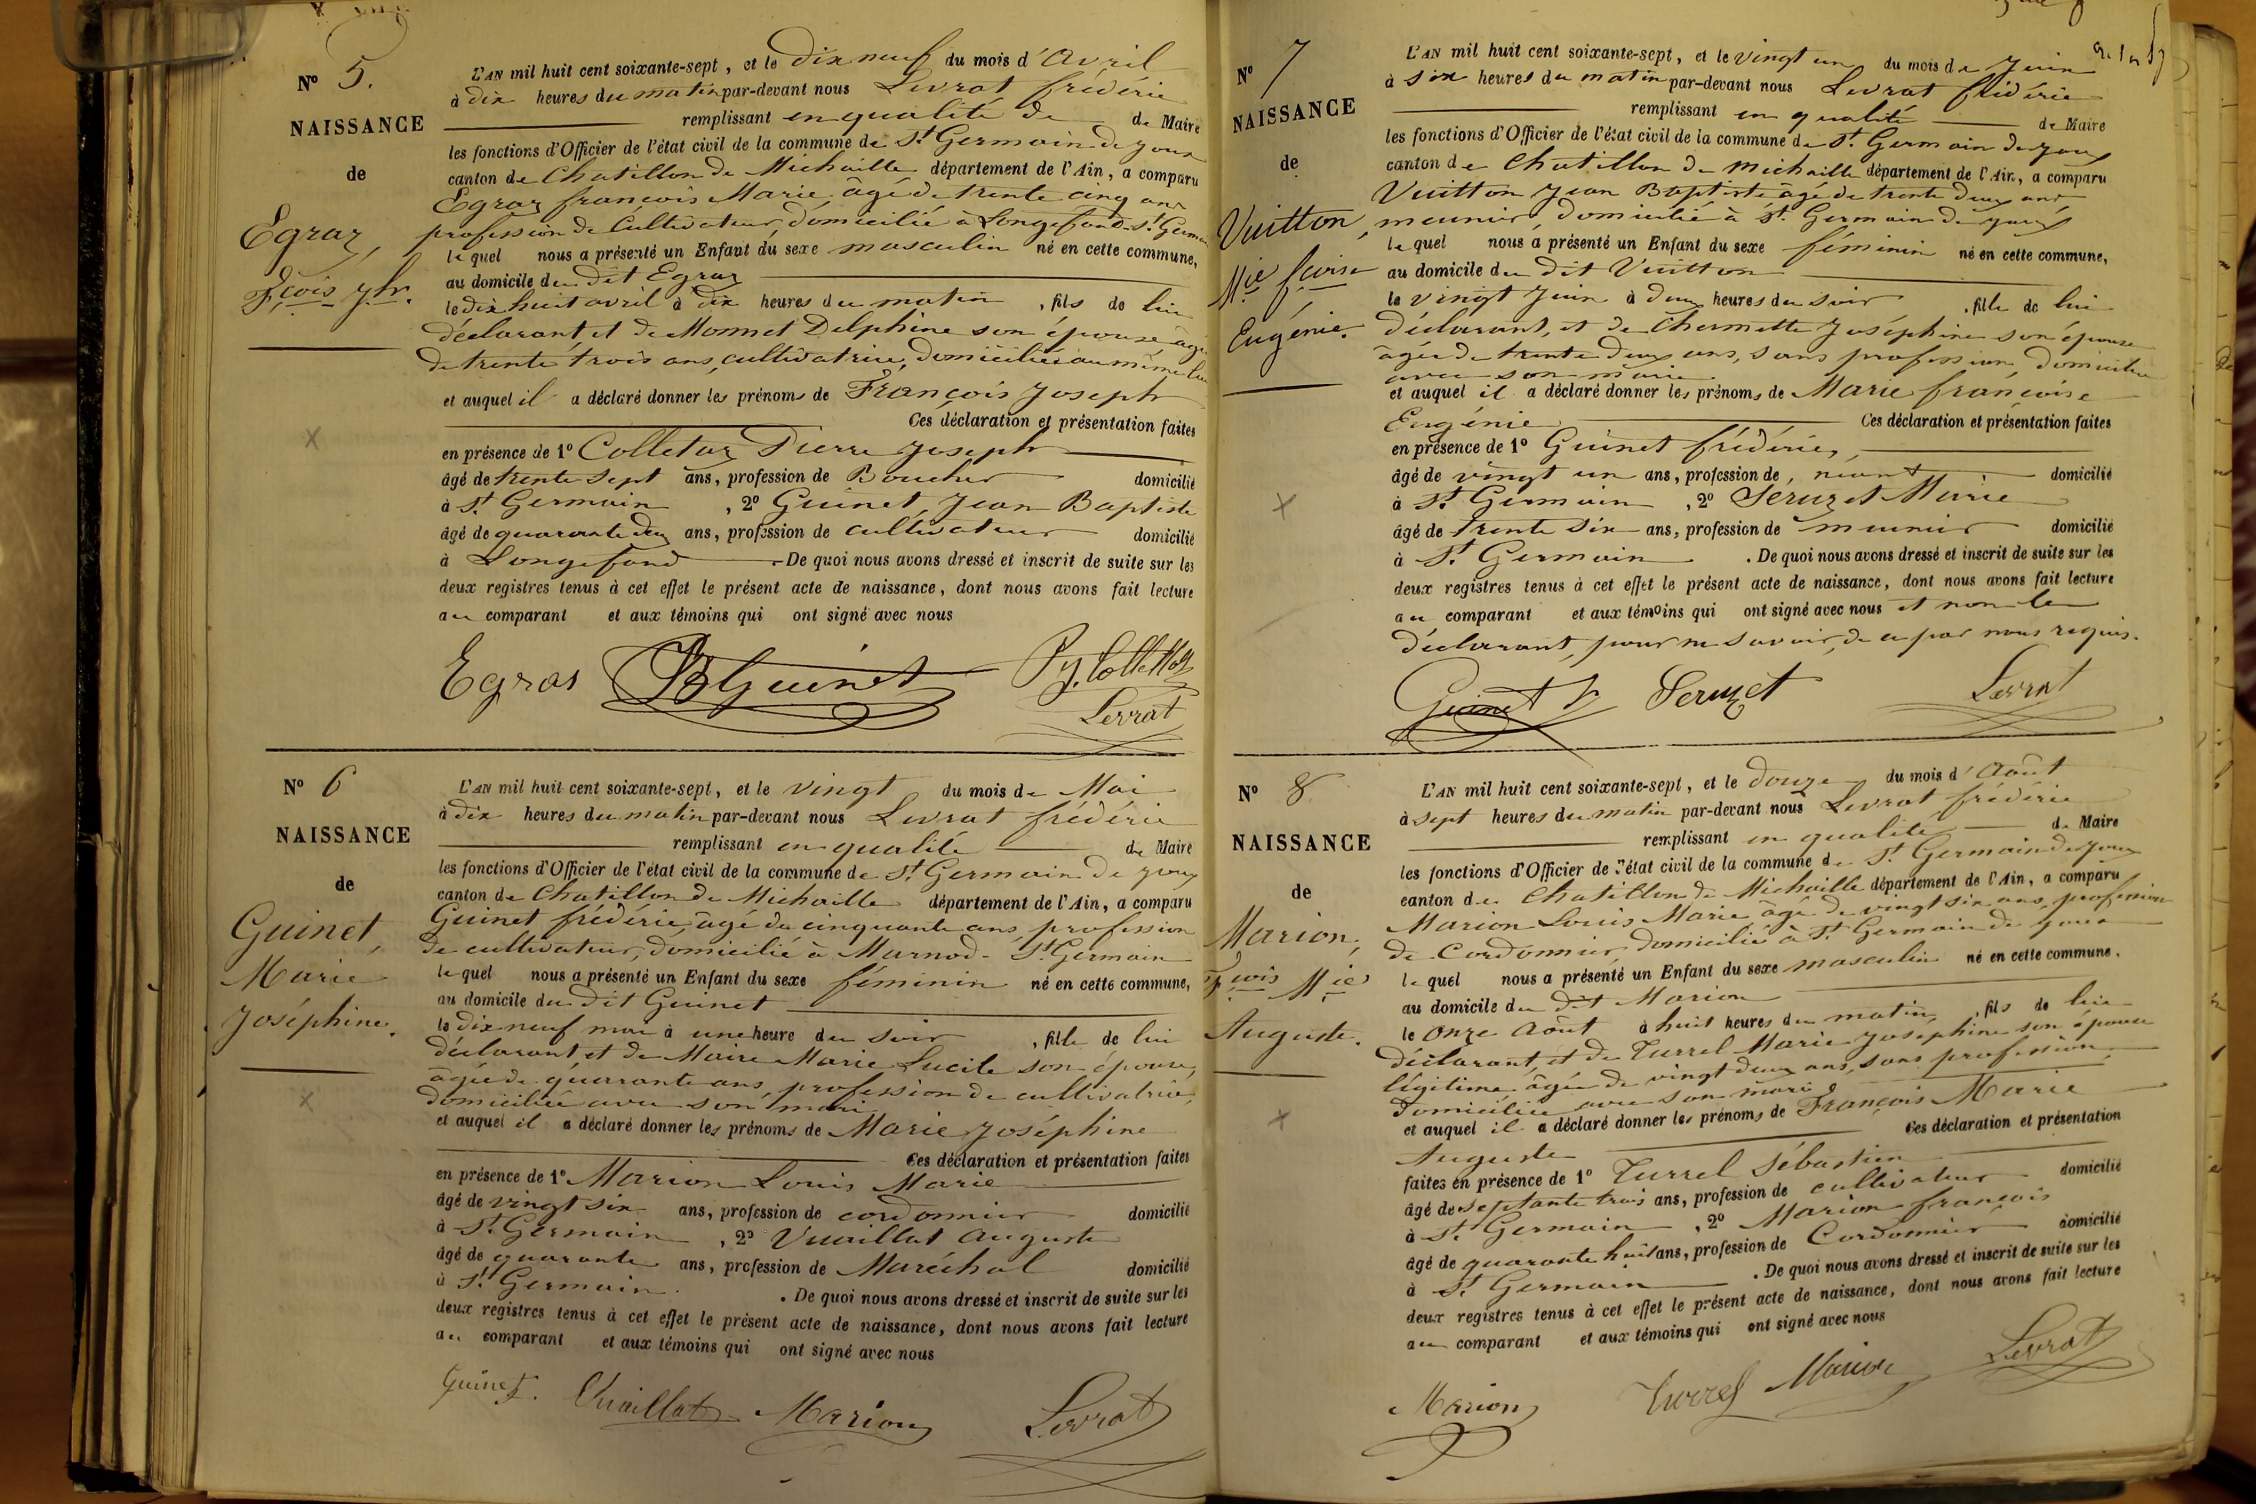 N° 5.
NAISSANCE
de
Egraz,
Fçois Jph.
L'AN mil huit cent soixante-sept, et le dix neuf du mois d'Avril
à dix heures du matin par-devant nous Levrat frédéric
remplissant en qualité de de Maire
les fonctions d'Officier de l'état civil de la commune de St Germain de Joux
canton de Chatillon de Michaille département de l'Ain, a comparu
Egraz françois Marie âgé de trente cinq ans
profession de Cultivateur, domicilié à Longefond St Germain
lequel nous a présenté un Enfant du sexe masculin né en cette commune,
au domicile du dit Egraz
le dix huit avril à dix heures du matin, fils de lui
déclarant et de Monnet Delphine son épouse âgée
de trente trois ans, cultivatrice, domiciliée au même lieu
et auquel il a déclaré donner les prénoms de François Joseph
Ces déclaration et présentation faites
en présence de 1° Colletaz Pierre Joseph
âgé de trente sept ans, profession de Boucher domicilié
à St Germain, 2° Guinet, Jean Baptiste
âgé de quarante deux ans, profession de cultivateur domicilié
à Longefond . De quoi nous avons dressé et inscrit de suite sur les
deux registres tenus à cet effet le présent acte de naissance, dont nous avons fait lecture
au comparant et aux témoins qui ont signé avec nous
Egras JB Guinet
Levrat
N° 6
NAISSANCE
de
Guinet,
Marie
Joséphine.
L'AN mil huit cent soixante-sept, et le vingt du mois de Mai
à dix heures du matin par-devant nous Levrat frédéric
remplissant en qualité de Maire
les fonctions d'Officier de l'état civil de la commune de St Germain de Joux
canton de Chatillon de Michaille département de l'Ain, a comparu
Guinet frédéric, âgé de cinquante ans, profession
de cultivateur, domicilié à Marnod - St Germain
lequel nous a présenté un Enfant du sexe féminin né en cette commune,
au domicile du dit Guinet
le dix neuf mai à une heure du soir, fille de lui
déclarant et de Maire Marie Lucile son épouse,
âgée de quarrante ans, profession de cultivatrice,
domiciliée avec son mari
et auquel il a déclaré donner les prénoms de Marie Joséphine
Ces déclaration et présentation faites
en présence de 1° Marion Louis Marie
âgé de vingt six ans, profession de cordonnier domicilié
à St Germain, 2° Vuaillat Auguste
âgé de quarante ans, profession de Maréchal domicilié
à St Germain. . De quoi nous avons dressé et inscrit de suite sur les
deux registres tenus à cet effet le présent acte de naissance, dont nous avons fait lecture
au comparant et aux témoins qui ont signé avec nous
Guinet. Vuaillat Marion Levrat
N° 7
NAISSANCE
de
Vuitton,
Mie fçoise
Eugénie.
L'AN mil huit cent soixante-sept, et le vingt un du mois de Juin
à six heures du matin par-devant nous Levrat frédéric
remplissant en qualité de Maire
les fonctions d'Officier de l'état civil de la commune de St Germain de Joux
canton de Chatillon de Michaille département de l'Ain, a comparu
Vuitton Jean Baptiste âgé de trente deux ans
meunier, domicilié à St Germain de Joux
lequel nous a présenté un Enfant du sexe féminin né en cette commune,
au domicile du dit Vuitton
le vingt Juin à deux heures du soir, fille de lui
déclarant, et de Chermette Joséphine son épouse
âgée de trente deux ans, sans profession domiciliée
avec son mari
et auquel il a déclaré donner les prénoms de Marie françoise
Eugénie Ces déclaration et présentation faites
en présence de 1° Guinet frédéric,
âgé de vingt un ans, profession de, néant domicilié
à St Germain, 2° Seruzet Marie
âgé de trente six ans, profession de meunier domicilié
à St Germain . De quoi nous avons dressé et inscrit de suite sur les
deux registres tenus à cet effet le présent acte de naissance, dont nous avons fait lecture
au comparant et aux témoins qui ont signé avec nous et non le
déclarant, pour ne savoir, de ce par nous requis.
Guinet f Seruzet Levrat
N° 8
NAISSANCE
de
Marion,
Fçois Mie
Auguste.
L'AN mil huit cent soixante-sept, et le douze du mois d'Août
à sept heures du matin par-devant nous Levrat frédéric
remplissant en qualité de Maire
les fonctions d'Officier de l'état civil de la commune de St Germain de Joux
canton de Chatillon de Michaille département de l'Ain, a comparu
Marion Louis Marie âgé de vingt six ans, profession
de Cordonnier, domicilié à St Germain de Joux
lequel nous a présenté un Enfant du sexe masculin né en cette commune.
au domicile du dit Marion
le onze Août à huit heures du matin, fils de lui
déclarant, et de Turrel Marie Joséphine son épouse
légitime âgée de vingt deux ans, sans profession,
domiciliée avec son mari
et auquel il a déclaré donner les prénoms de François Marie
Auguste Ces déclaration et présentation
faites en présence de 1° Turrel Sébastien
âgé de septante trois ans, profession de cultivateur domicilié
à St Germain, 2° Marion françois
âgé de quarante huit ans, profession de Cordonnier domicilié
à St Germain . De quoi nous avons dressé et inscrit de suite sur les
deux registres tenus à cet effet le présent acte de naissance, dont nous avons fait lecture
au comparant et aux témoins qui ont signé avec nous
Marion Turrel Marion Levrat